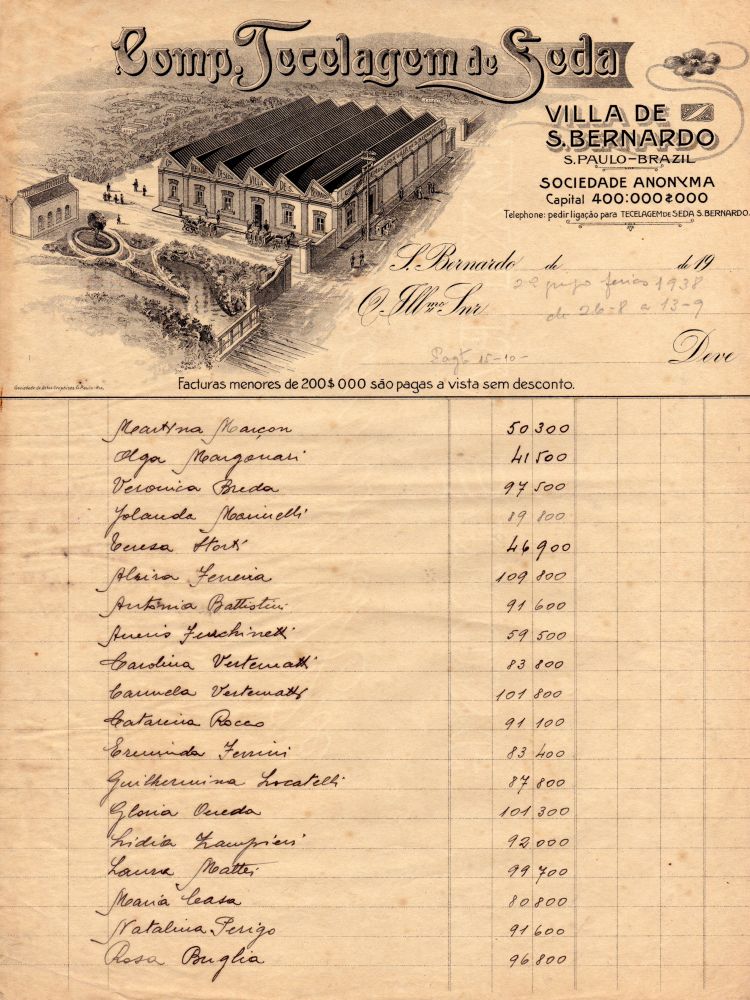 Comp. Tecelagem de Seda
VILLA DE
S. BERNARDO
S. PAULO-BRAZIL
SOCIEDADE ANONYMA
Capital 400:000$000
Telephone: pedir ligação para TECELAGEM DE SEDA S. BERNARDO.
S. Bernardo de de 19
2º pago ferias 1938
O Illmo Snr.
de 26-8 a 13-9
Pagt 15-10-
Deve
Facturas menores de 200$000 são pagas a vista sem desconto.
Martina Marçon 50 300
Olga Marganari 41 500
Veronica Breda 97 500
Jolanda Marinelli 89 800
Teresa Storti 46 900
Alzira Ferreira 109 800
Antonia Battistini 91 600
59 500
Carolina Vertematti 83 800
Carmela Vertematti 101 800
Catarina Rocco 91 100
Erminda Ferrini 83 400
Guilhermina Locatelli 87 800
Gloria 101 300
Lidia Zampieri 92 000
Laura Mattei 99 700
Maria Casa 80 800
Natalina Perigo 91 600
Rosa Buglia 96 800